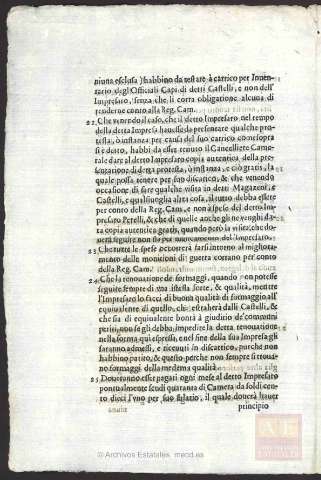 niuna esclusa) habbino da restare à carrico per Inuen-
tario degl'Officiali Capi di detti Castelli, e non dell'
Impresaro, senza che li corra obligatione alcuna di
renderne conto alla Reg. Cam.
22. Che venendo il caso, che il detto Impresaro nel tempo
della detta Impresa hauesse da presentare qualche pro-
testa, ò instanza per causa del suo carrico come sopra
s'è detto, habbi da esser tenuto il Cancelliere Came-
rale dare al detto Impresaro copia autentica della pre-
sentatione di detta protesta, ò instanza, e ciò gratis, la
quale possa tenere per suo discarico, & che venendo
occasione di fare qualche visita in detti Magazeni, e
Castelli, e qualsiuoglia altra cosa, il tutto debba essere
per conto della Reg. Cam. e non à spese del detto Im-
presaro Perelli, & che di quelle anche gli ne venghi da-
ta copia autentica gratis, quando però la visita, che do-
uerà seguire non sia per mancamento del Impresaro.
23. Che tutte le spese doueranno farsi intorno al migliora-
mento delle monitioni di guerra corrano per conto
della Reg. Cam.
24. Che la renouatione de formaggi, quando non potesse
seguire sempre di vna istessa sorte, & qualità, mentre
l'Impresaro lo facci di buona qualità di formaggio all'
equiualente di quello, che estraherà dalli Castelli, &
che sia di equiualente bontà à giudicio de communi
periti, non se gli debba impedire la detta renouatione
nella forma quì espressa, e nel fine della sua Impresa gli
saranno admessi, e riceuuti in discarico, purche non
habbino patito, & questo perche non sempre si troua-
no formaggi della medema qualità.
25. Doueranno esser pagati ogni mese al detto Impresaro
pontualmente scudi quaranta di Camera da soldi cen-
to dieci l'vno per suo salario, il quale douerà hauer
principio
© Archivos Estatales, mecd.es